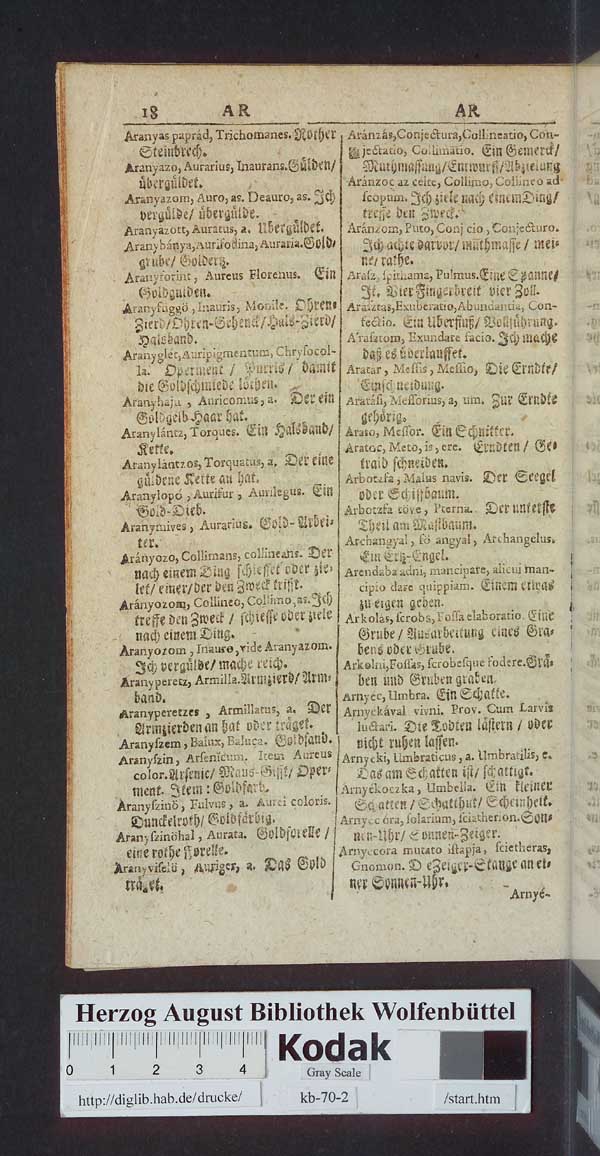 18 AR
Aranyas paprád, Trichomanes. Rother
Steinbrech.
Aranyazo, Aurarius, Inaurans. Gülden/
übergüldet.
Aranyazom, Auro, as. Deauro, as. Ich
vergülde/ übergülde.
Aranyazott, Auratus, a. Ubergüldet.
Aranybánya, Aurifodina, Auraria. Gold/
grube/ Golderz.
Aranyforint, Aureus Florenus. Ein
Goldgulden.
Aranyfüggö, Inauris, Monile. Ohren-
Zierd/ Ohren-Gehenck/ Hals-Zierd/
Halsband.
Aranyglét, Auripigmentum, Chrysocol-
la. Operment / damit
die Goldschmiede löthen.
Aranyhaju, Auricomus, a. Der ein
Goldgelb Haar hat.
Aranylántz, Torques. Ein Halsband/
Kette.
Aranylántzos, Torquatus, a. Der eine
güldene Kette an hat.
Aranylopó, Aurifur, Aurilegus. Ein
Gold-Dieb.
Aranymives, Aurarius. Gold-Arbei-
ter.
Arányozo, Collimans, collineans. Der
nach einem Ding schiesset oder zie-
let/ einer/ der den Zweck trifft.
Arányozom, Collineo, Collimo, as. Ich
treffe den Zweck / schiesse oder ziele
nach einem Ding.
Aranyozom, Inauro, vide Aranyazom.
Ich vergülde/ mache reich.
Aranyperetz, Armilla. Armzierd/ Arm-
band.
Aranyperetzes, Armillatus, a. Der
Armzierden an hat oder träget.
Aranyszem, Balux, Baluca. Goldsand.
Aranyszin, Arsenicum. Item Aureus
color. Arsenic/ Maus-Gifft/ Oper-
ment. Item: Goldfarb.
Aranyszinö, Fulvus, a. Aurei coloris.
Dunckelroth/ Goldfärbig.
Aranyszinöhal, Aurata. Goldforelle /
eine rothe Forelle.
Aranyviselö, Auriger, a. Das Gold
träget.
AR
Aránzás, Conjectura, Collineatio, Con-
jectatio, Collimatio. Ein Gemerck/
Muthmassung/ Entwurff/ Abzielung
Aránzoc az céltc, Collimo, Collineo ad
scopum. Ich ziele nach einem Ding/
treffe den Zweck.
Aránzom, Puto, Conjicio, Conjecturo.
Ich achte darvor/ muthmasse / mei-
ne/ rathe.
Arasz, spithama, Pulmus. Eine Spanne/
It. Vier Fingerbreit vier Zoll.
Arasztas, Exuberatio, Abundantia, Con-
fectio. Ein Uberfluß/ Vollführung.
Arasztom, Exundare facio. Ich mache
daß es überlauffet.
Aratar, Messis, Messio, Die Erndte/
Einschneidung.
Aratási, Messorius, a, um. Zur Erndte
gehörig.
Arato, Messor. Ein Schnitter.
Aratoc, Meto, is, ere. Erndten/ Ge-
traid schneiden.
Arbotzfa, Malus navis. Der Seegel
oder Schiffbaum.
Arbotzfa töve, Pterna. Der unterste
Theil am Mastbaum.
Archangyal, fö angyal, Archangelus.
Ein Ertz-Engel.
Arendaba adni, mancipare, alicui man-
cipio dare quippiam. Einem etwas
zu eigen geben.
Arkolás, scrobs, Fossa elaboratio. Eine
Grube/ Ausarbeitung eines Gra-
bens oder Grube.
Arkolni, Fossas, scrobesque fodere. Grä-
ben und Gruben graben.
Arnyec, Umbra. Ein Schatte.
Arnyékával vivni. Prov. Cum Larvis
luctari. Die Todten lästern / oder
nicht ruhen lassen.
Arnyéki, Umbraticus, a. Umbratilis, e.
Das am Schatten ist/ schattigt.
Arnyékoczka, Umbella. Ein kleiner
Schatten / Schatthut/ Scheinheit.
Arnyec óra, solarium, sciatherion. Son-
nen-Uhr/ Sonnen-Zeiger.
Arnyecora mutato istapja, scietheras,
Gnomon. De Zeiger-Stange an ei-
ner Sonnen-Uhr.
Arnyé-
Herzog August Bibliothek Wolfenbüttel
0 1 2 3 4
Kodak
Gray Scale
http://diglib.hab.de/drucke/ kb-70-2 /start.htm